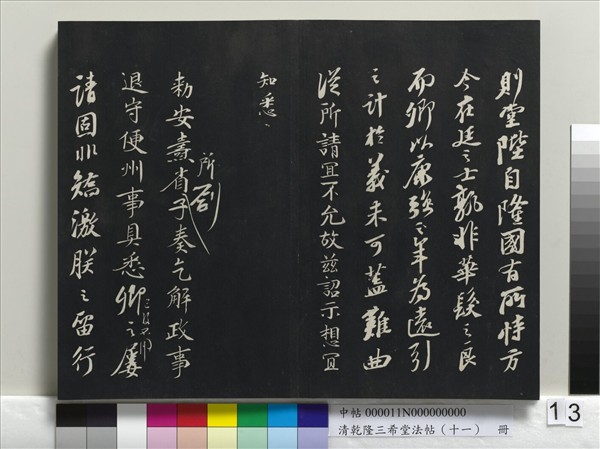 則堂陛自隆國有所恃方
今在廷之士孰非華髮之良
而卿以康強之年為遠引
之計於義未可蓋難曲
從所請宜不允故茲詔示想宜
知悉
所劄
勅安燾省子奏乞解政事
退守便州事具悉卿之屢
請固非矯激朕之留行
中帖 000011N000000000
清乾隆三希堂法帖（十一） 冊
13